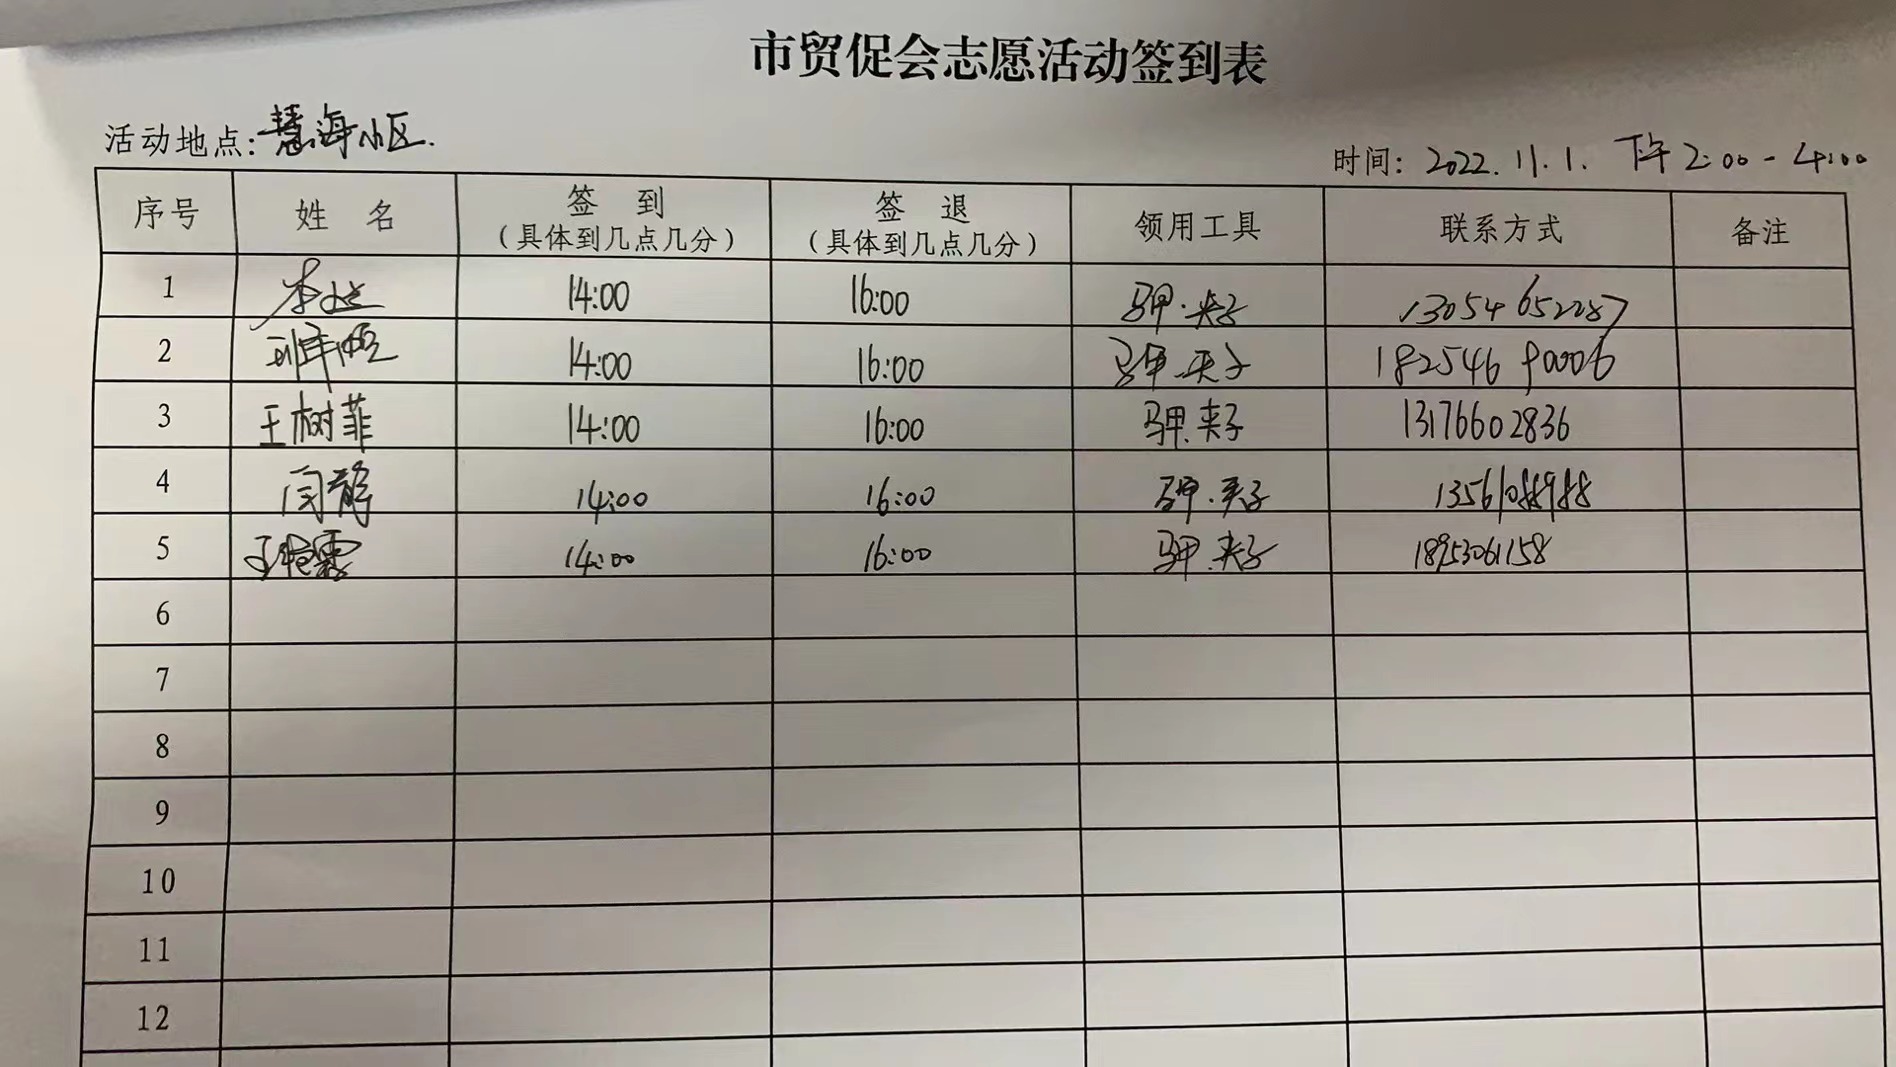 市贸促会志愿活动签到表
活动地点:慧海小区.
时间: 2022.11.1. 下午2:00-4:00
序号 姓名 签到(具体到几点几分) 签退(具体到几点几分) 领用工具 联系方式 备注
1 14:00 16:00 马甲.夹子 13054652287
2 14:00 16:00 马甲.夹子 18254690006
3 王树菲 14:00 16:00 马甲.夹子 13176602836
4 闫静 14:00 16:00 马甲.夹子
5 14:00 16:00 马甲.夹子 18953061158
6
7
8
9
10
11
12